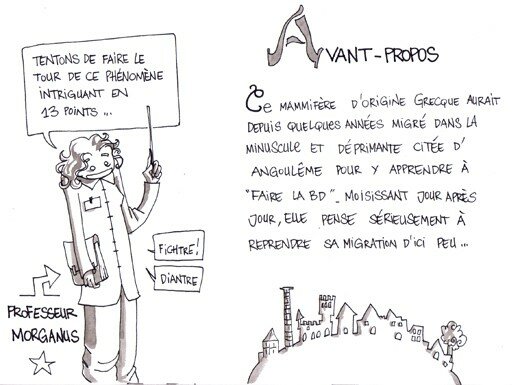 TENTONS DE FAIRE LE
TOUR DE CE PHÉNOMÈNE
INTRIGUANT EN
13 POINTS ...
FICHTRE!
DIANTRE
PROFESSEUR
MORGANUS
AVANT-PROPOS
Ce MAMMIFÈRE D'ORIGINE GRECQUE AURAIT
DEPUIS QUELQUES ANNÉES MIGRÉ DANS LA
MINUSCULE ET DÉPRIMANTE CITÉE D'
ANGOULÊME POUR Y APPRENDRE À
"FAIRE LA BD"_ MOISISSANT JOUR APRÈS
JOUR, ELLE PENSE SÉRIEUSEMENT À
REPRENDRE SA MIGRATION D'ICI PEU ...